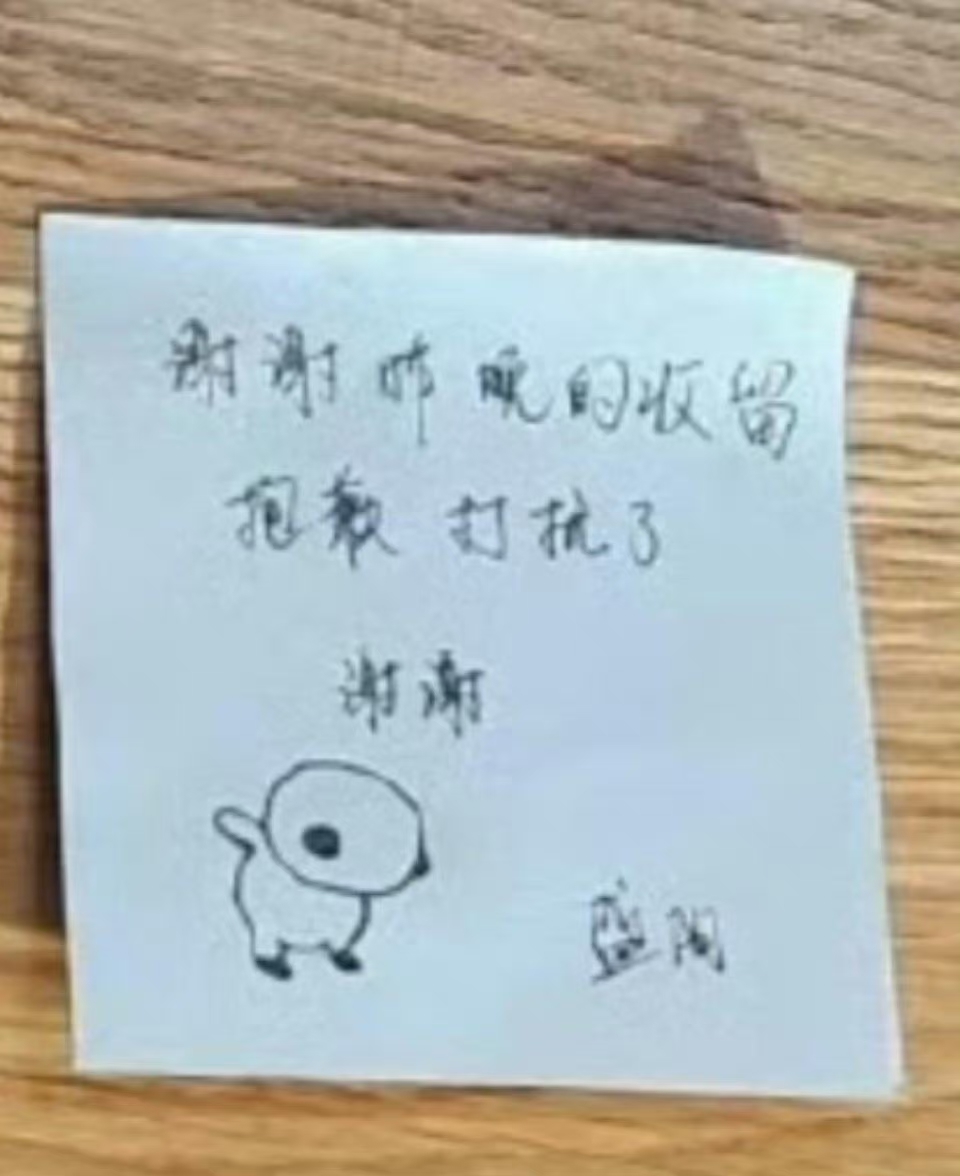 谢谢昨晚的收留
抱歉 打扰了
谢谢
盛阳